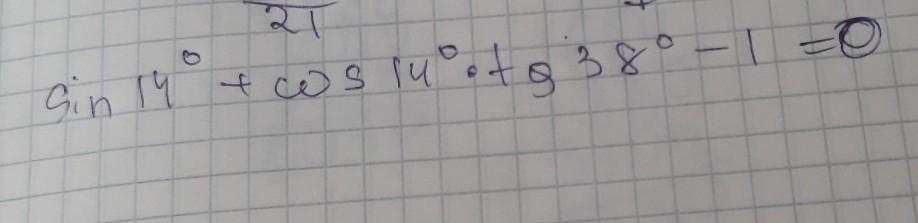 21
sin 14° + cos 14° · tg 38° - 1 = 0